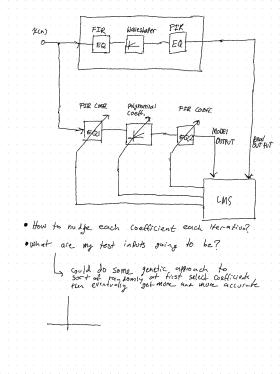 x(n)
FIR
Waveshaper
FIR
EQ
EQ
FIR COEFF
Polynomial
Coeffs
FIR COEFF
EQ
EQ
MODEL
OUTPUT
OUTPUT
LMS
• How to nudge each coefficient each iteration?
• What are my test inputs going to be?
↳ Could do some genetic approach to
sort of randomly at first select coefficients
then eventually get more and more accurate